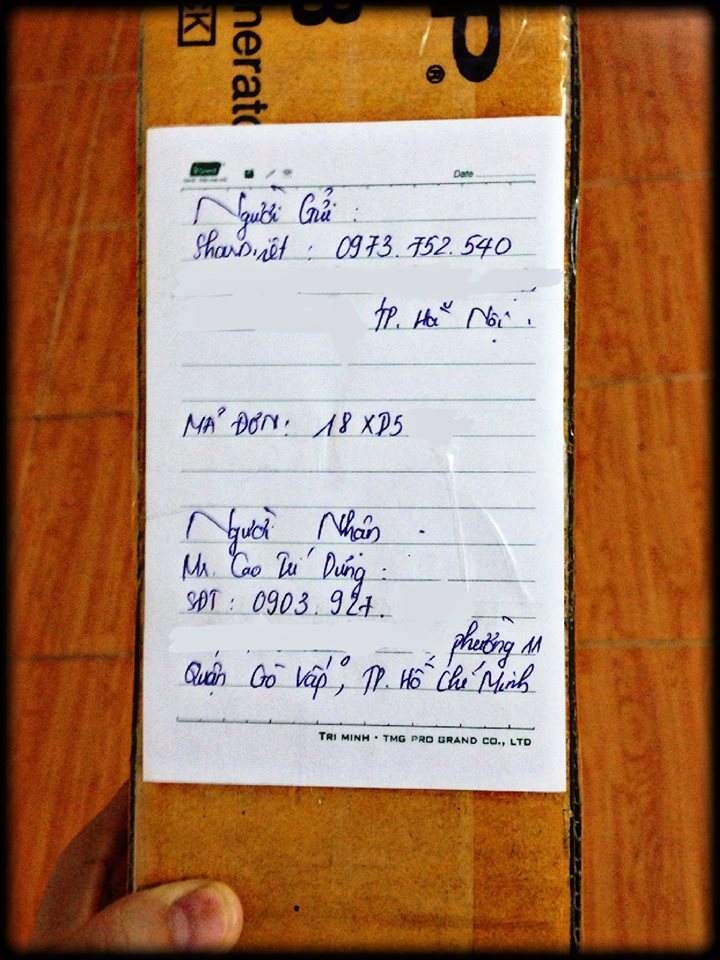 CK
nerato
8
P®
Date
Người Gửi :
Share.iệt : 0973.752.540
TP. Hà Nội.
MÃ ĐƠN: 18XD5
Người Nhân.
Mr. Cao Tú Dũng :
SĐT : 0903.927.
phường 11
Quận Gò Vấp, TP. Hồ Chí Minh
TRI MINH · TMG PRO GRAND CO., LTD